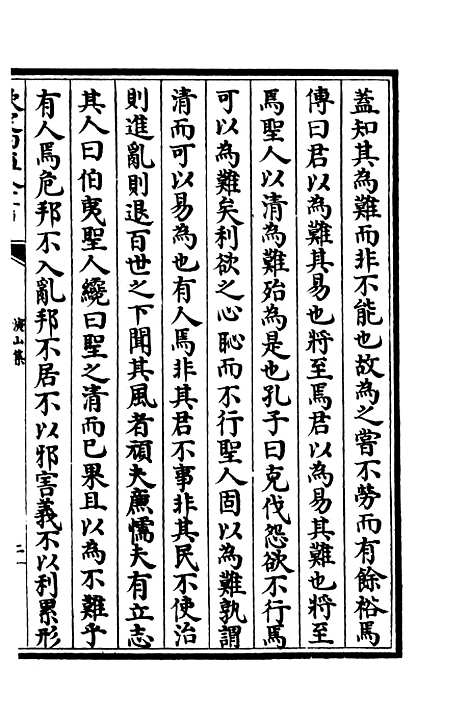 蓋知其為難而非不能也故為之嘗不勞而有餘裕焉
傳曰君以為難其易也將至焉君以為易其難也將至
焉聖人以清為難殆為是也孔子曰克伐怨欲不行焉
可以為難矣利欲之心恥而不行聖人固以為難孰謂
清而可以易為也有人焉非其君不事非其民不使治
則進亂則退百世之下聞其風者頑夫廉懦夫有立志
其人曰伯夷聖人纔曰聖之清而已果且以為不難乎
有人焉危邦不入亂邦不居不以邪害義不以利累形
山集
二